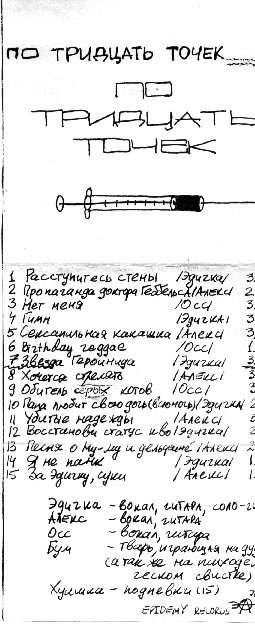 ПО ТРИДЦАТЬ ТОЧЕК
ПО
ТРИДЦАТЬ
ТОЧЕК
1 Расступитесь стены /Эдичка/ 3
2 Пропаганда доктора Геббельса /Алекс/ 2
3 Нет меня /Осс/ 3
4 Гимн /Эдичка/ 3
5 Сексапильная какашка /Алекс/ 3
6 Birthday reggae /Осс/ 1
7 Звезда Героинида /Эдичка/ 3
8 Хочется стрелять /Алекс/ 3
9 Обитель серых котов /Осс/
10 Папа любит свою дочь /Эдичка/ 2
11 Убитые надежды /Алекс/
12 Восстанови статус кво /Эдичка/ 2
13 Песня о Му-му и дельтаме /Алекс/ 2
14 Я не панк /Эдичка/ 1
15 За Эдичку, суки /Алекс/ 1
Эдичка - вокал, гитара, соло-г
Алекс - вокал, гитара
Осс - вокал, гитара
Бум - тварь, играющая на уд
(а также на психоде
ческом свистке)
Хуишка - подпевки (15)
EPIDEMY RECORDS